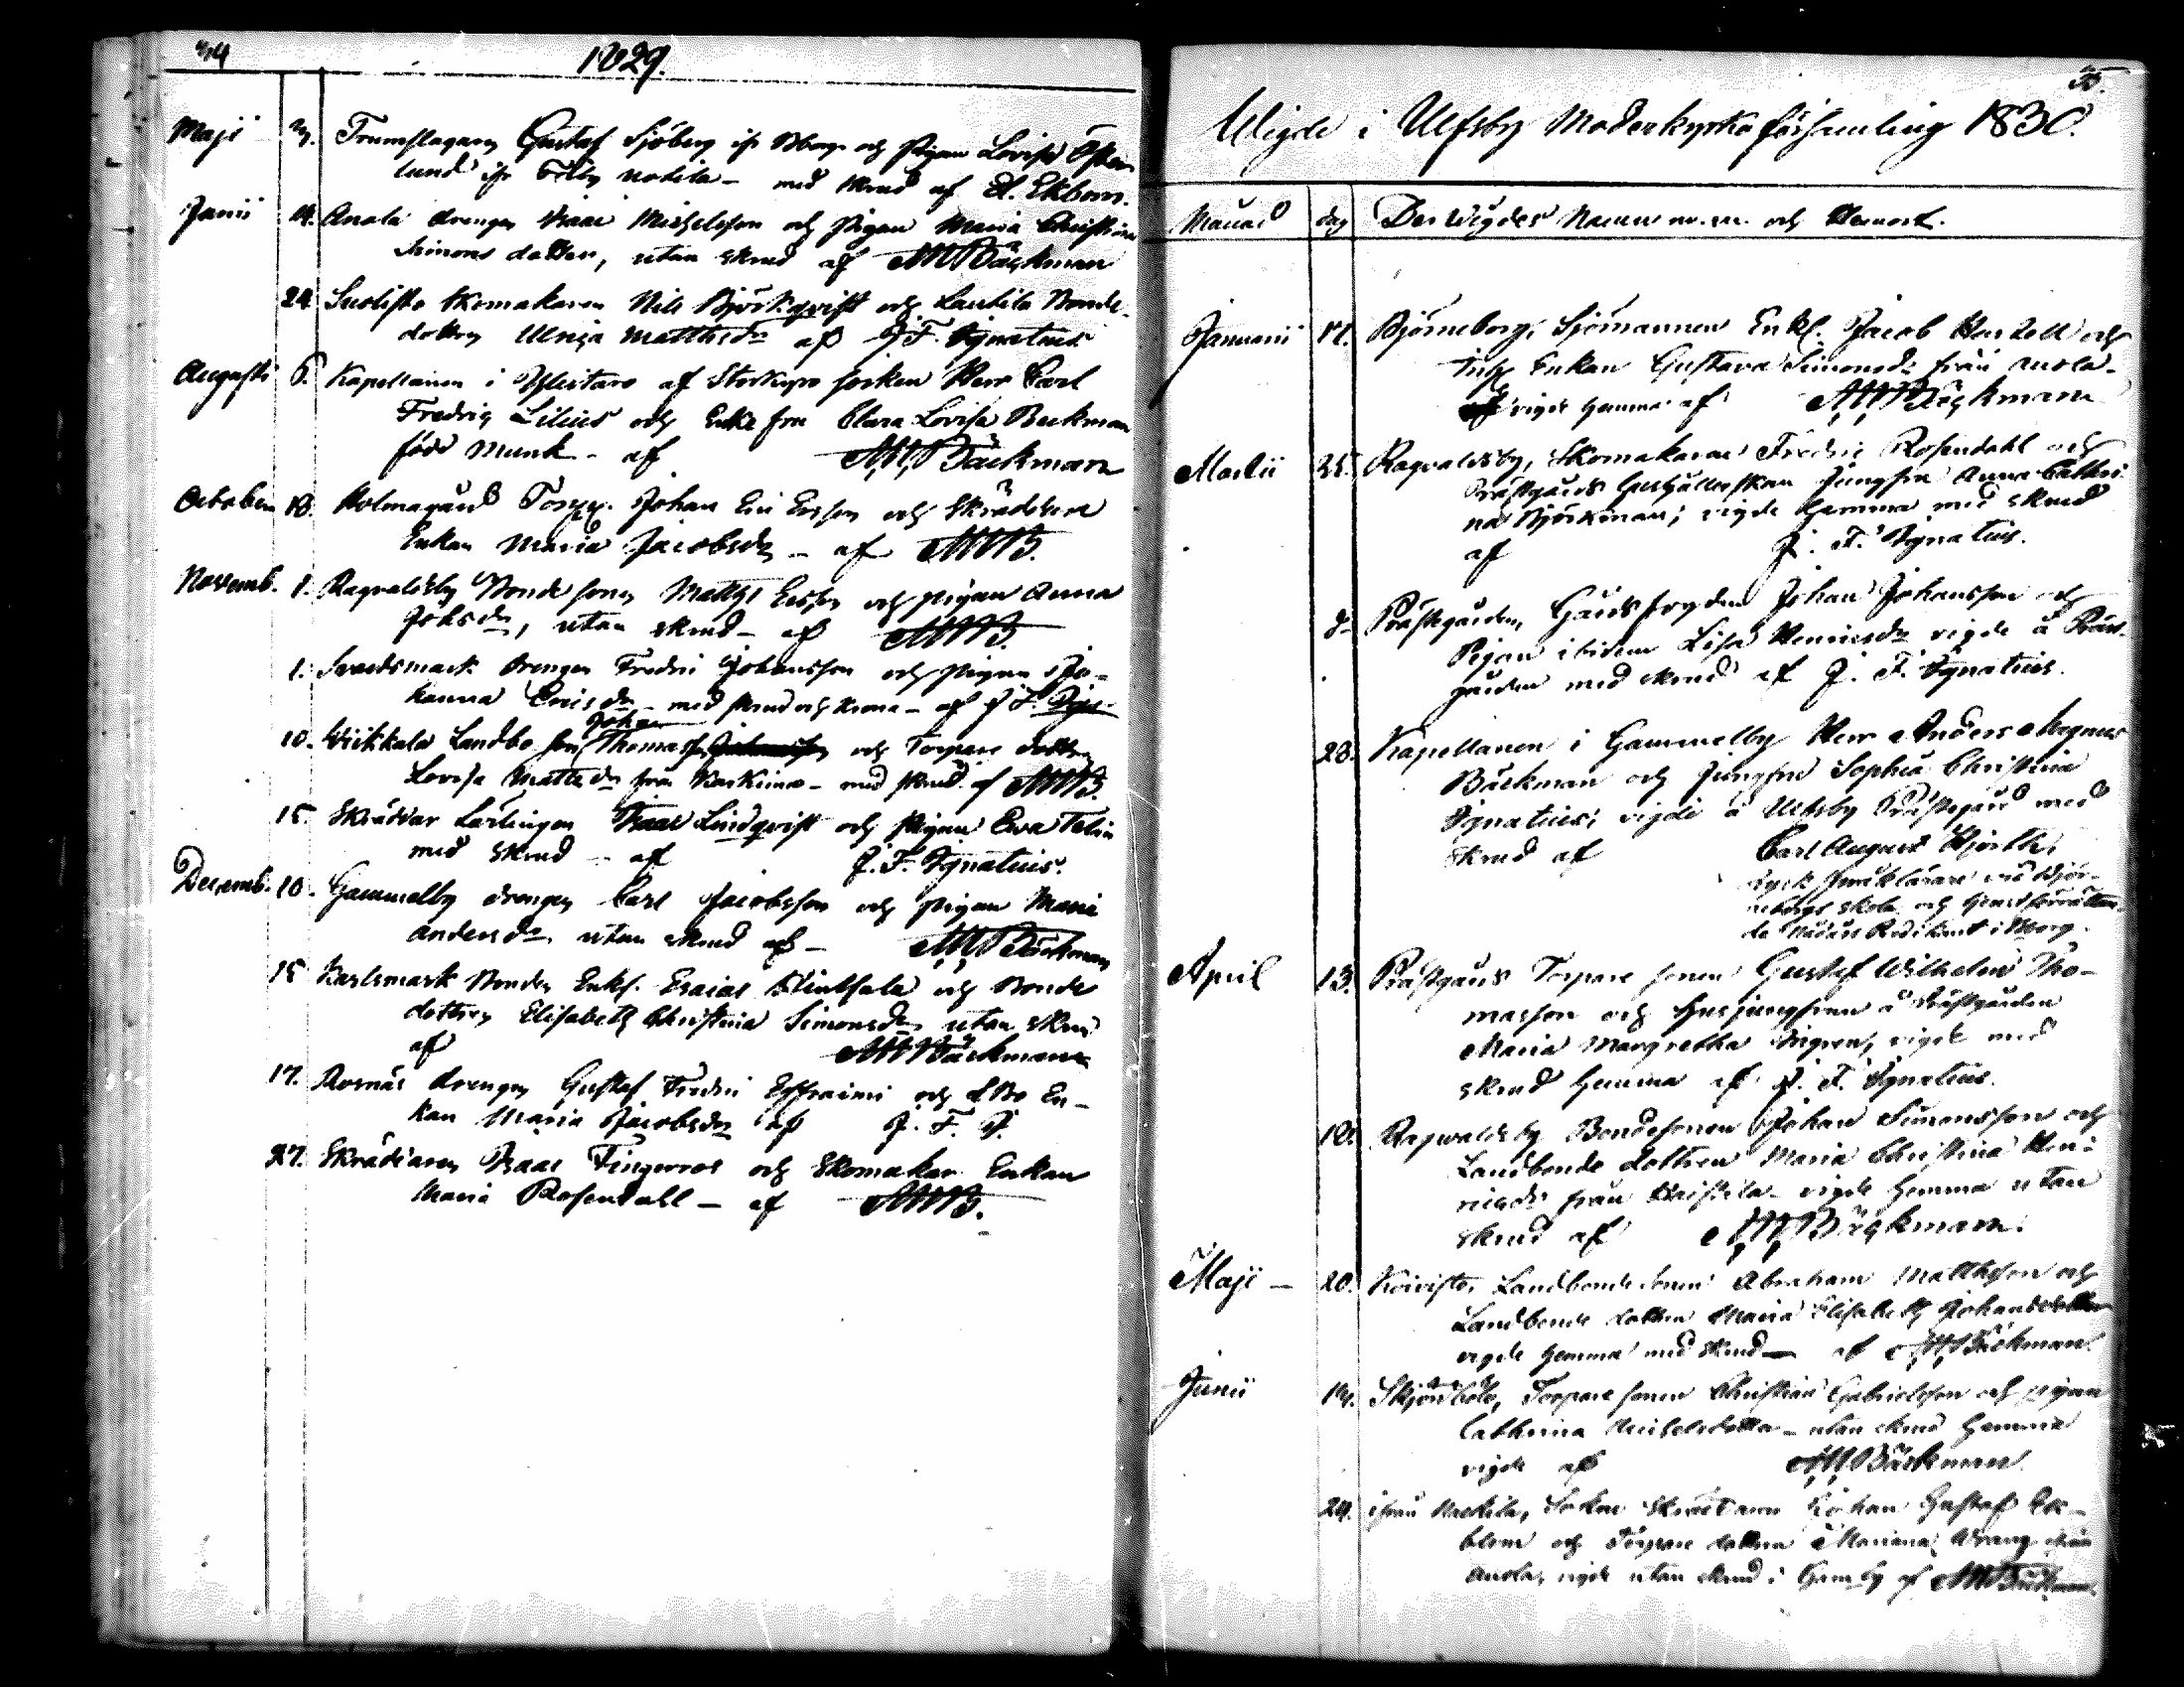 34
1829.
Maji 3. Trumslagaren Gustaf Sjöberg och Pigan Lovisa Öster-
lund med skrud af Ekbom.
Junii 14. Anola drengen Isaac Michelsson och pigan Maria Christina
Simons dotter, utan skrud af AMBäckman
24. Suosisto Skomakaren Nils Björkqvist och Lautila Bonde-
dottren Ulrica Matthsdr af J. F. Ignatius
Augusti 6. Kapellanen i Ylistaro af Storkyro socken Herr Carl
Fredric Lilius och Enke fru Clara Lovisa Backman
född Munk - af AMBäckman
October 18. Holmagård Torpp. Johan Eric Ersson och Skräddare
Enkan Maria Jacobsdr - af AMB.
Novemb. 1. Ragvaldsby Bonde sonen Matths Ersson och pigan Anna
Johsdr, utan skrud - af AMB.
1. Svartsmark Drengen Fredric Johansson och pigan Jo-
hanna Ericsdr - med skrud och krona - af J. F. Ign-
Johan
10. Wiikkala Landbo son Thomas och Torpare dottren
Lovisa Mattsdr från Kaskima - med skrud af AMB.
15. Skräddar Lärlingen Isaac Lindqvist och pigan Eva Telin
med skrud - af J. F. Ignatius.
Decemb. 10. Gammelby drengen Carl Jacobsson och pigan Maria
Andersdr utan skrud af - AMBäckman
15. Karlsmark Bonden Enkl. Esaias och Bonde
dottren Elisabeth Christina Simonsdr utan skrud
af AMBäckman
17. Rosnäs drengen Gustaf Fredric Effraimi och Enkan
Maria Jacobsdr af J. F. I.
27. Skräddaren Isaac Fingerroos och Skomakar Enkan
Maria Rosendall - af AMB.
35.
Wigde i Ulfsby Moderkyrko församling 1830.
Månad dag Des Wigdes Namn m.m. och Hemort.
Januarii 17. Björneborg, Sjömannen Enkl. Jacob och
Enkan Gustava Simonsdr från Anola -
vigde hemma af AMBäckman
Martii 25. Ragvaldsby, Skomakaren Fredric Rosendahl och
Prästgårds Hushållerskan Jungfru Anna Cathri-
na Björkman; vigde hemma med skrud
af J. F. Ignatius.
d- Prästgården, Gårdsfogden Johan Johansson och
Pigan ibidem Lisa Henricsdr vigde å Präst-
gården med skrud af J. F. Ignatius.
28. Kapellanen i Gammelby Herr Anders Magnus
Bäckman och Jungfru Sophia Christina
Ignatius; vigde å Ulfsby Prästegård med
skrud af Carl August Hjorth,
tysk språklärare vid Björ-
neborgs skola och
April 13. Prästgårds Torpare sonen Gustaf Wilhelm Tho-
masson och Husjungfrun å Prästgården
Maria Margretha vigde med
skrud hemma af J. F. Ignatius.
18. Ragwaldsby Bondesonen Johan Simonsson och
Landbonde dottren Maria Christina Hen-
ricsdr från vigde hemma utan
skrud af AMBäckman.
Maji - 20. Koivisto, Landbonde sonen Abraham Matthsson och
Landbonde dottren Maria Elisabeth Johansdotter
vigde hemma med skrud - af AMBäckman.
Junii 14. Torpare sonen Christian Gabrielsson och pigan
Cathrina Michelsdotter - utan skrud hemma
vigde af AMBäckman.
24. ifrån Sockne Skräddaren Johan Gustaf Ek-
blom och Torpare dottren Mariana Wrang ifrån
Anola, vigde utan skrud i Gamlby af AMBäckman